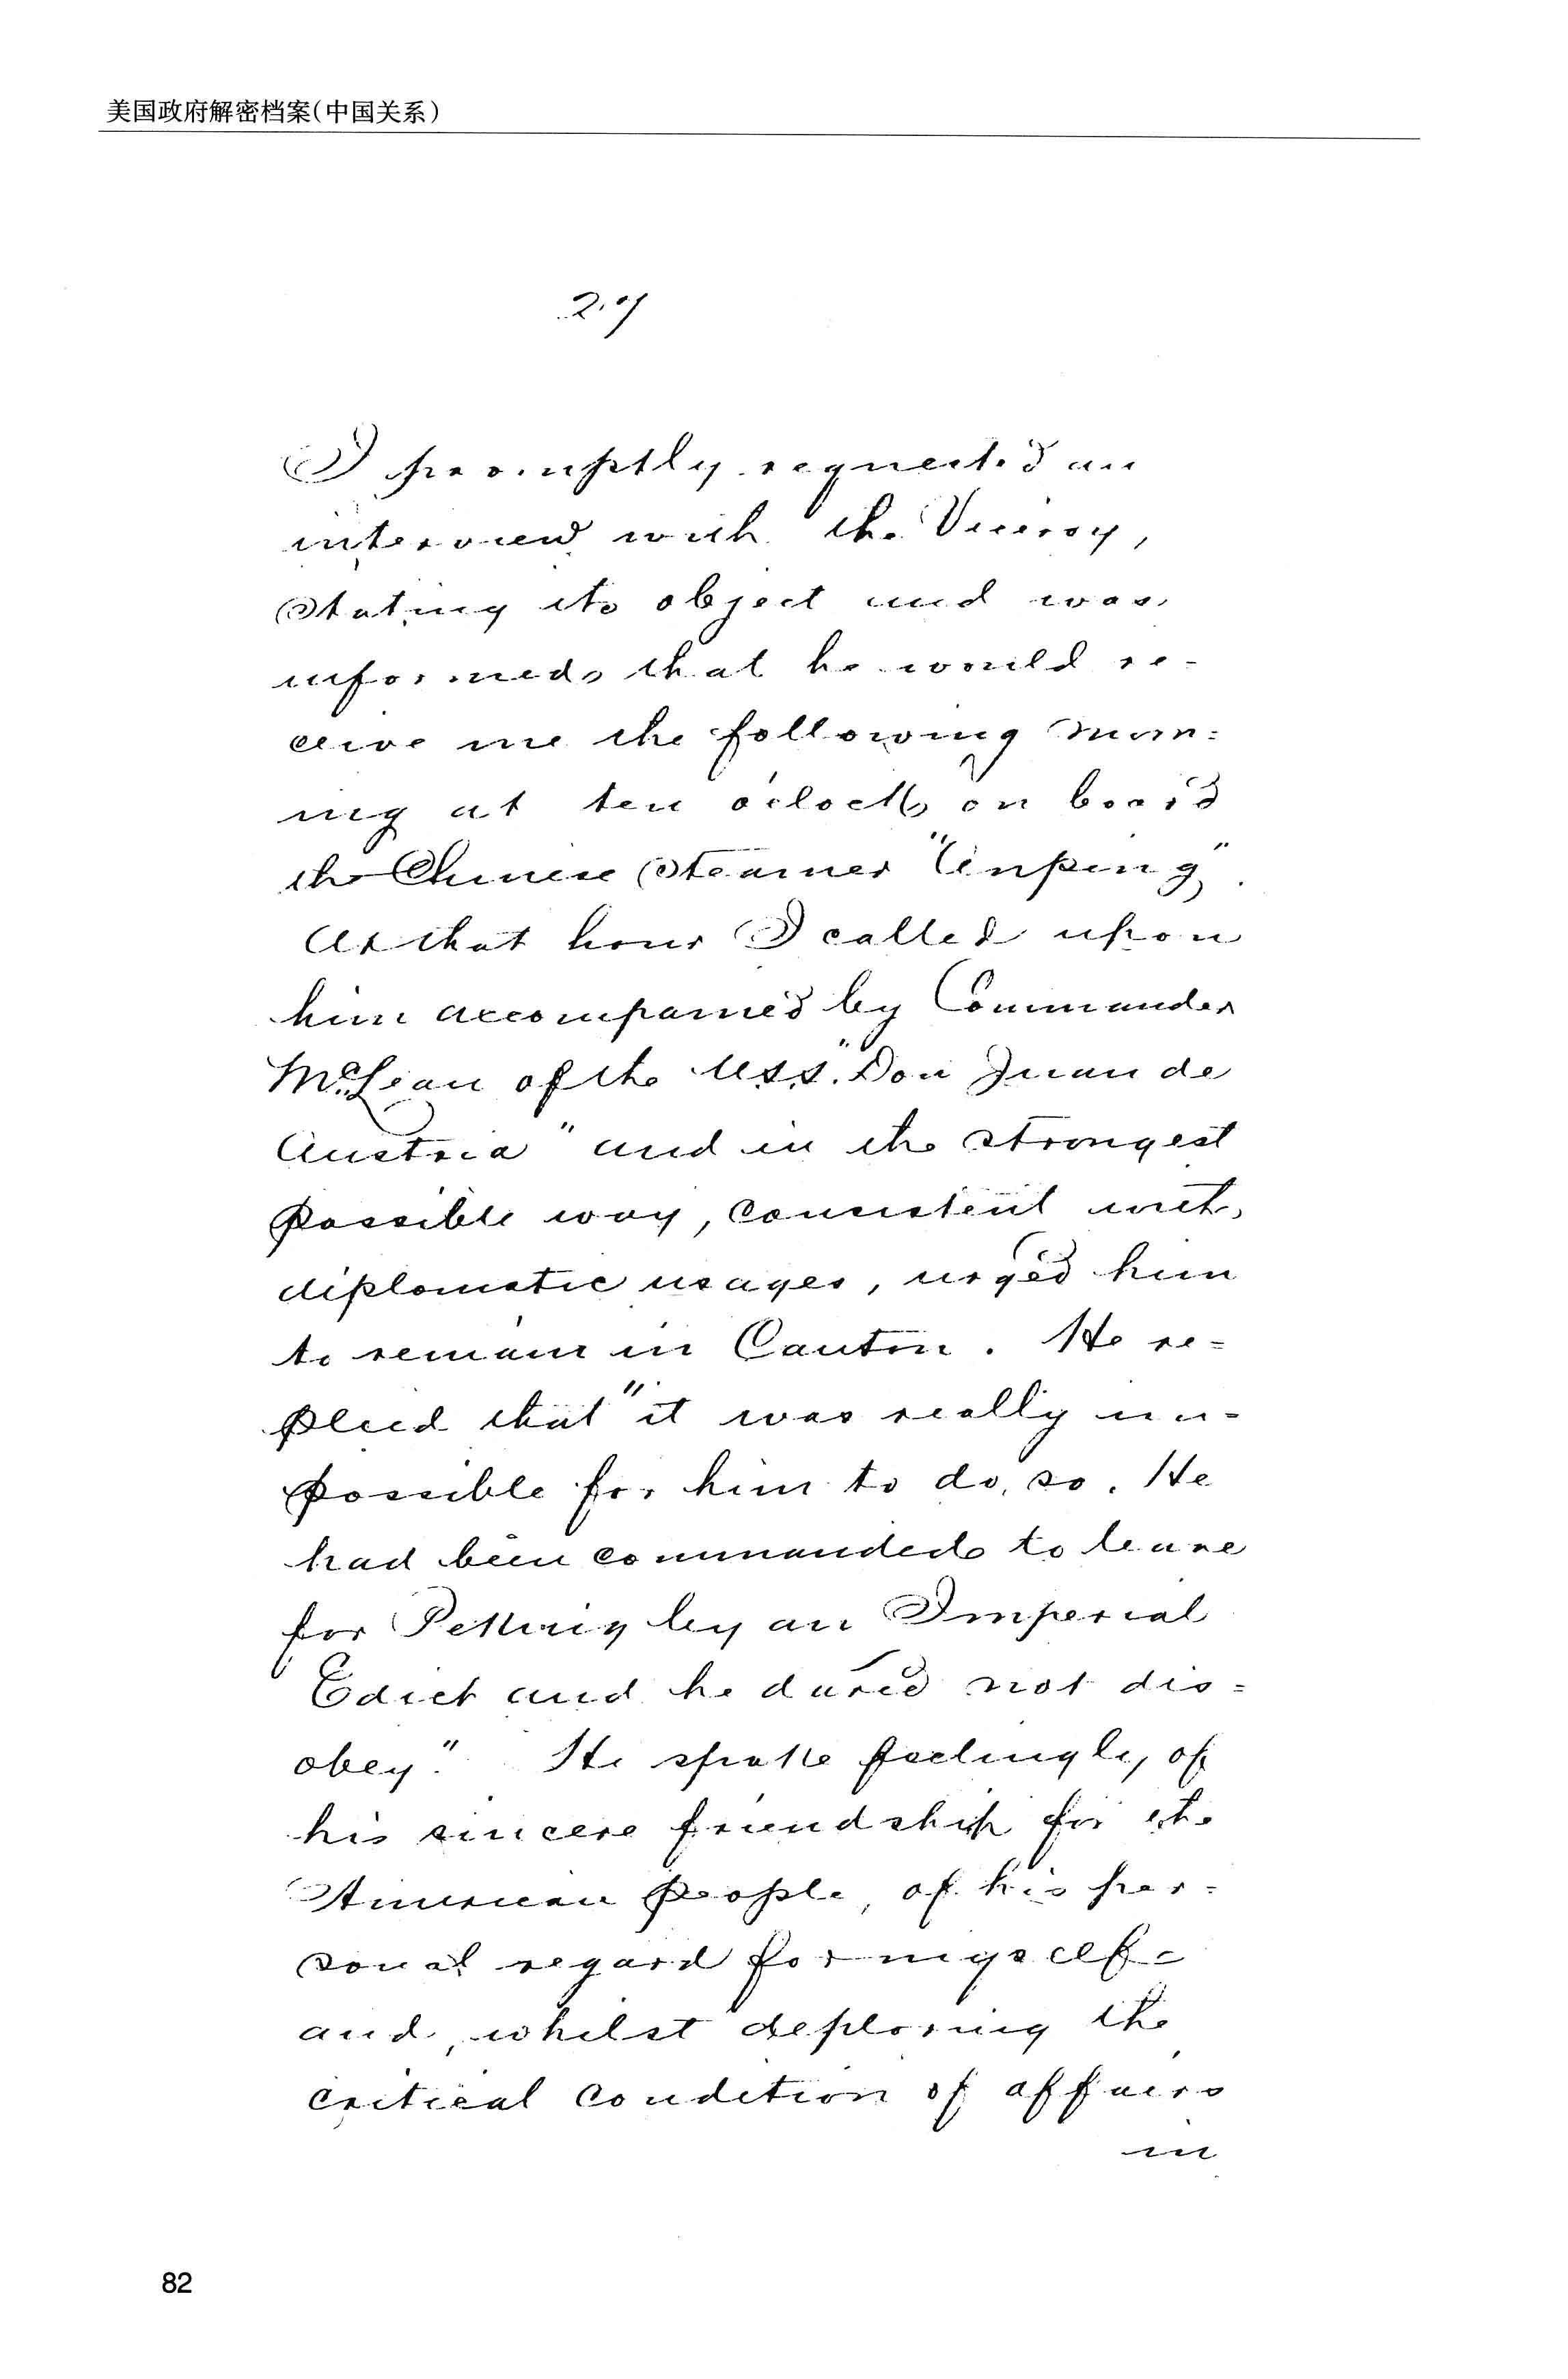 美国政府解密档案(中国关系)
27
I promptly requested an
interview with the Viceroy,
stating its object and was
informed, that he would re-
ceive me the following morn=
ing at ten o'clock, on board
the Chinese steamer "Anping".
At that hour I called upon
him accompanied by Commander
McLean of the U.S.S. "Don Juan de
Austria" and in the strongest
possible way, consistent with,
diplomatic usages, urged him
to remain in Canton. He re=
plied that "it was really im-
possible for him to do, so. He
had been commanded to leave
for Peking by an Imperial
Edict and he dared not dis=
obey." He spoke feelingly, of
his sincere friendship for the
American people, of his per=
sonal regard for myself=
and, whilst deploring the
critical condition of affairs
in
82